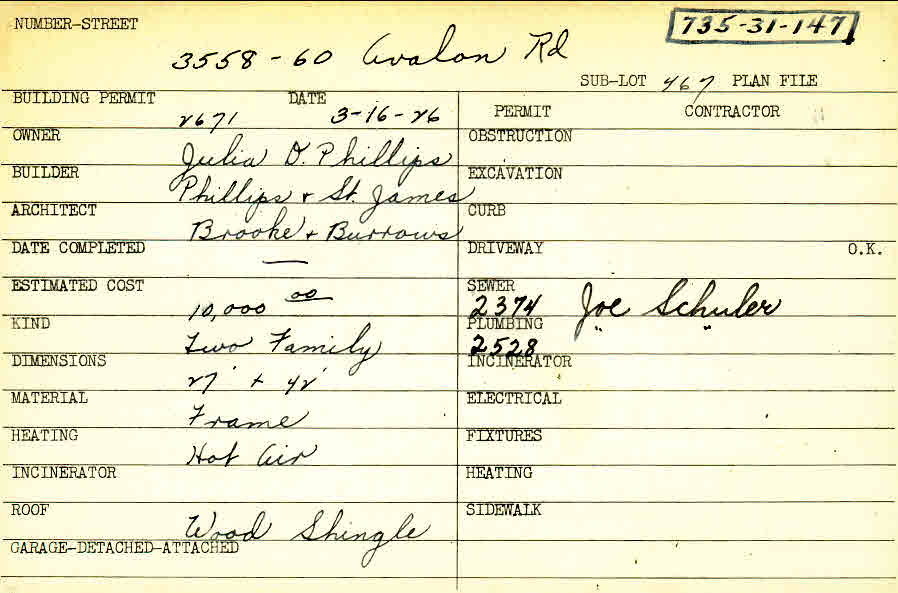 NUMBER-STREET
735-31-147
3558-60 Avalon Rd
SUB-LOT 467 PLAN FILE
BUILDING PERMIT 2671 DATE 3-16-26
PERMIT CONTRACTOR
OWNER Julia D. Phillips
OBSTRUCTION
BUILDER Phillips + St. James
EXCAVATION
ARCHITECT Brooke + Burrows
CURB
DATE COMPLETED —
DRIVEWAY O.K.
ESTIMATED COST 10,000 00
SEWER 2374 Joe Schuler
KIND Two Family
PLUMBING 2528 " "
DIMENSIONS 27' + 42'
INCINERATOR
MATERIAL Frame
ELECTRICAL
HEATING Hot Air
FIXTURES
INCINERATOR
HEATING
ROOF Wood Shingle
SIDEWALK
GARAGE-DETACHED-ATTACHED